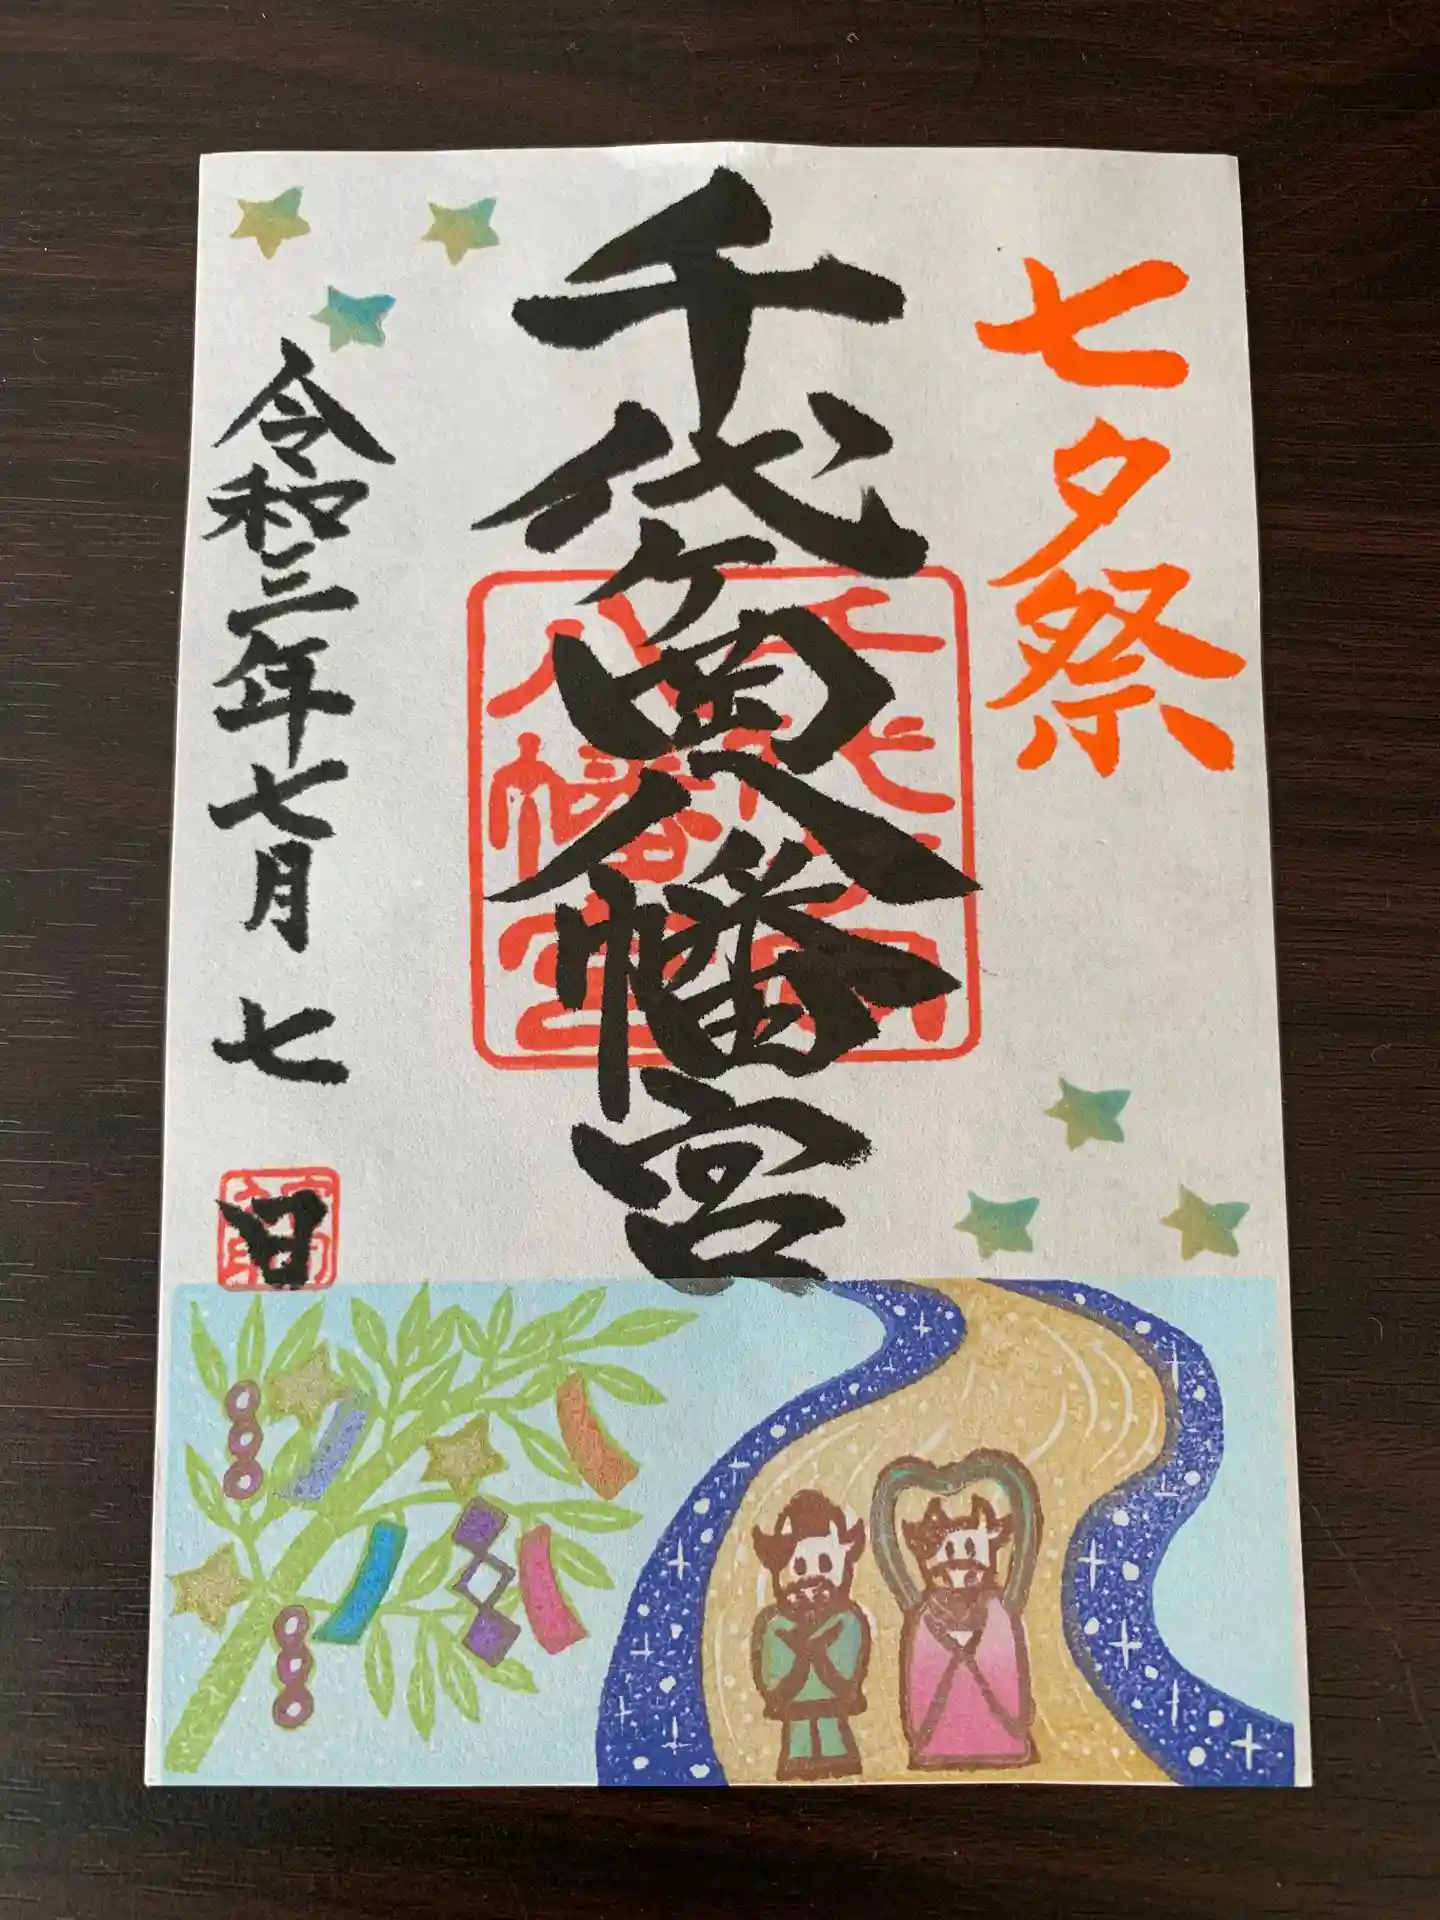 七夕祭
千代ヶ岡八幡宮
令和三年七月七日